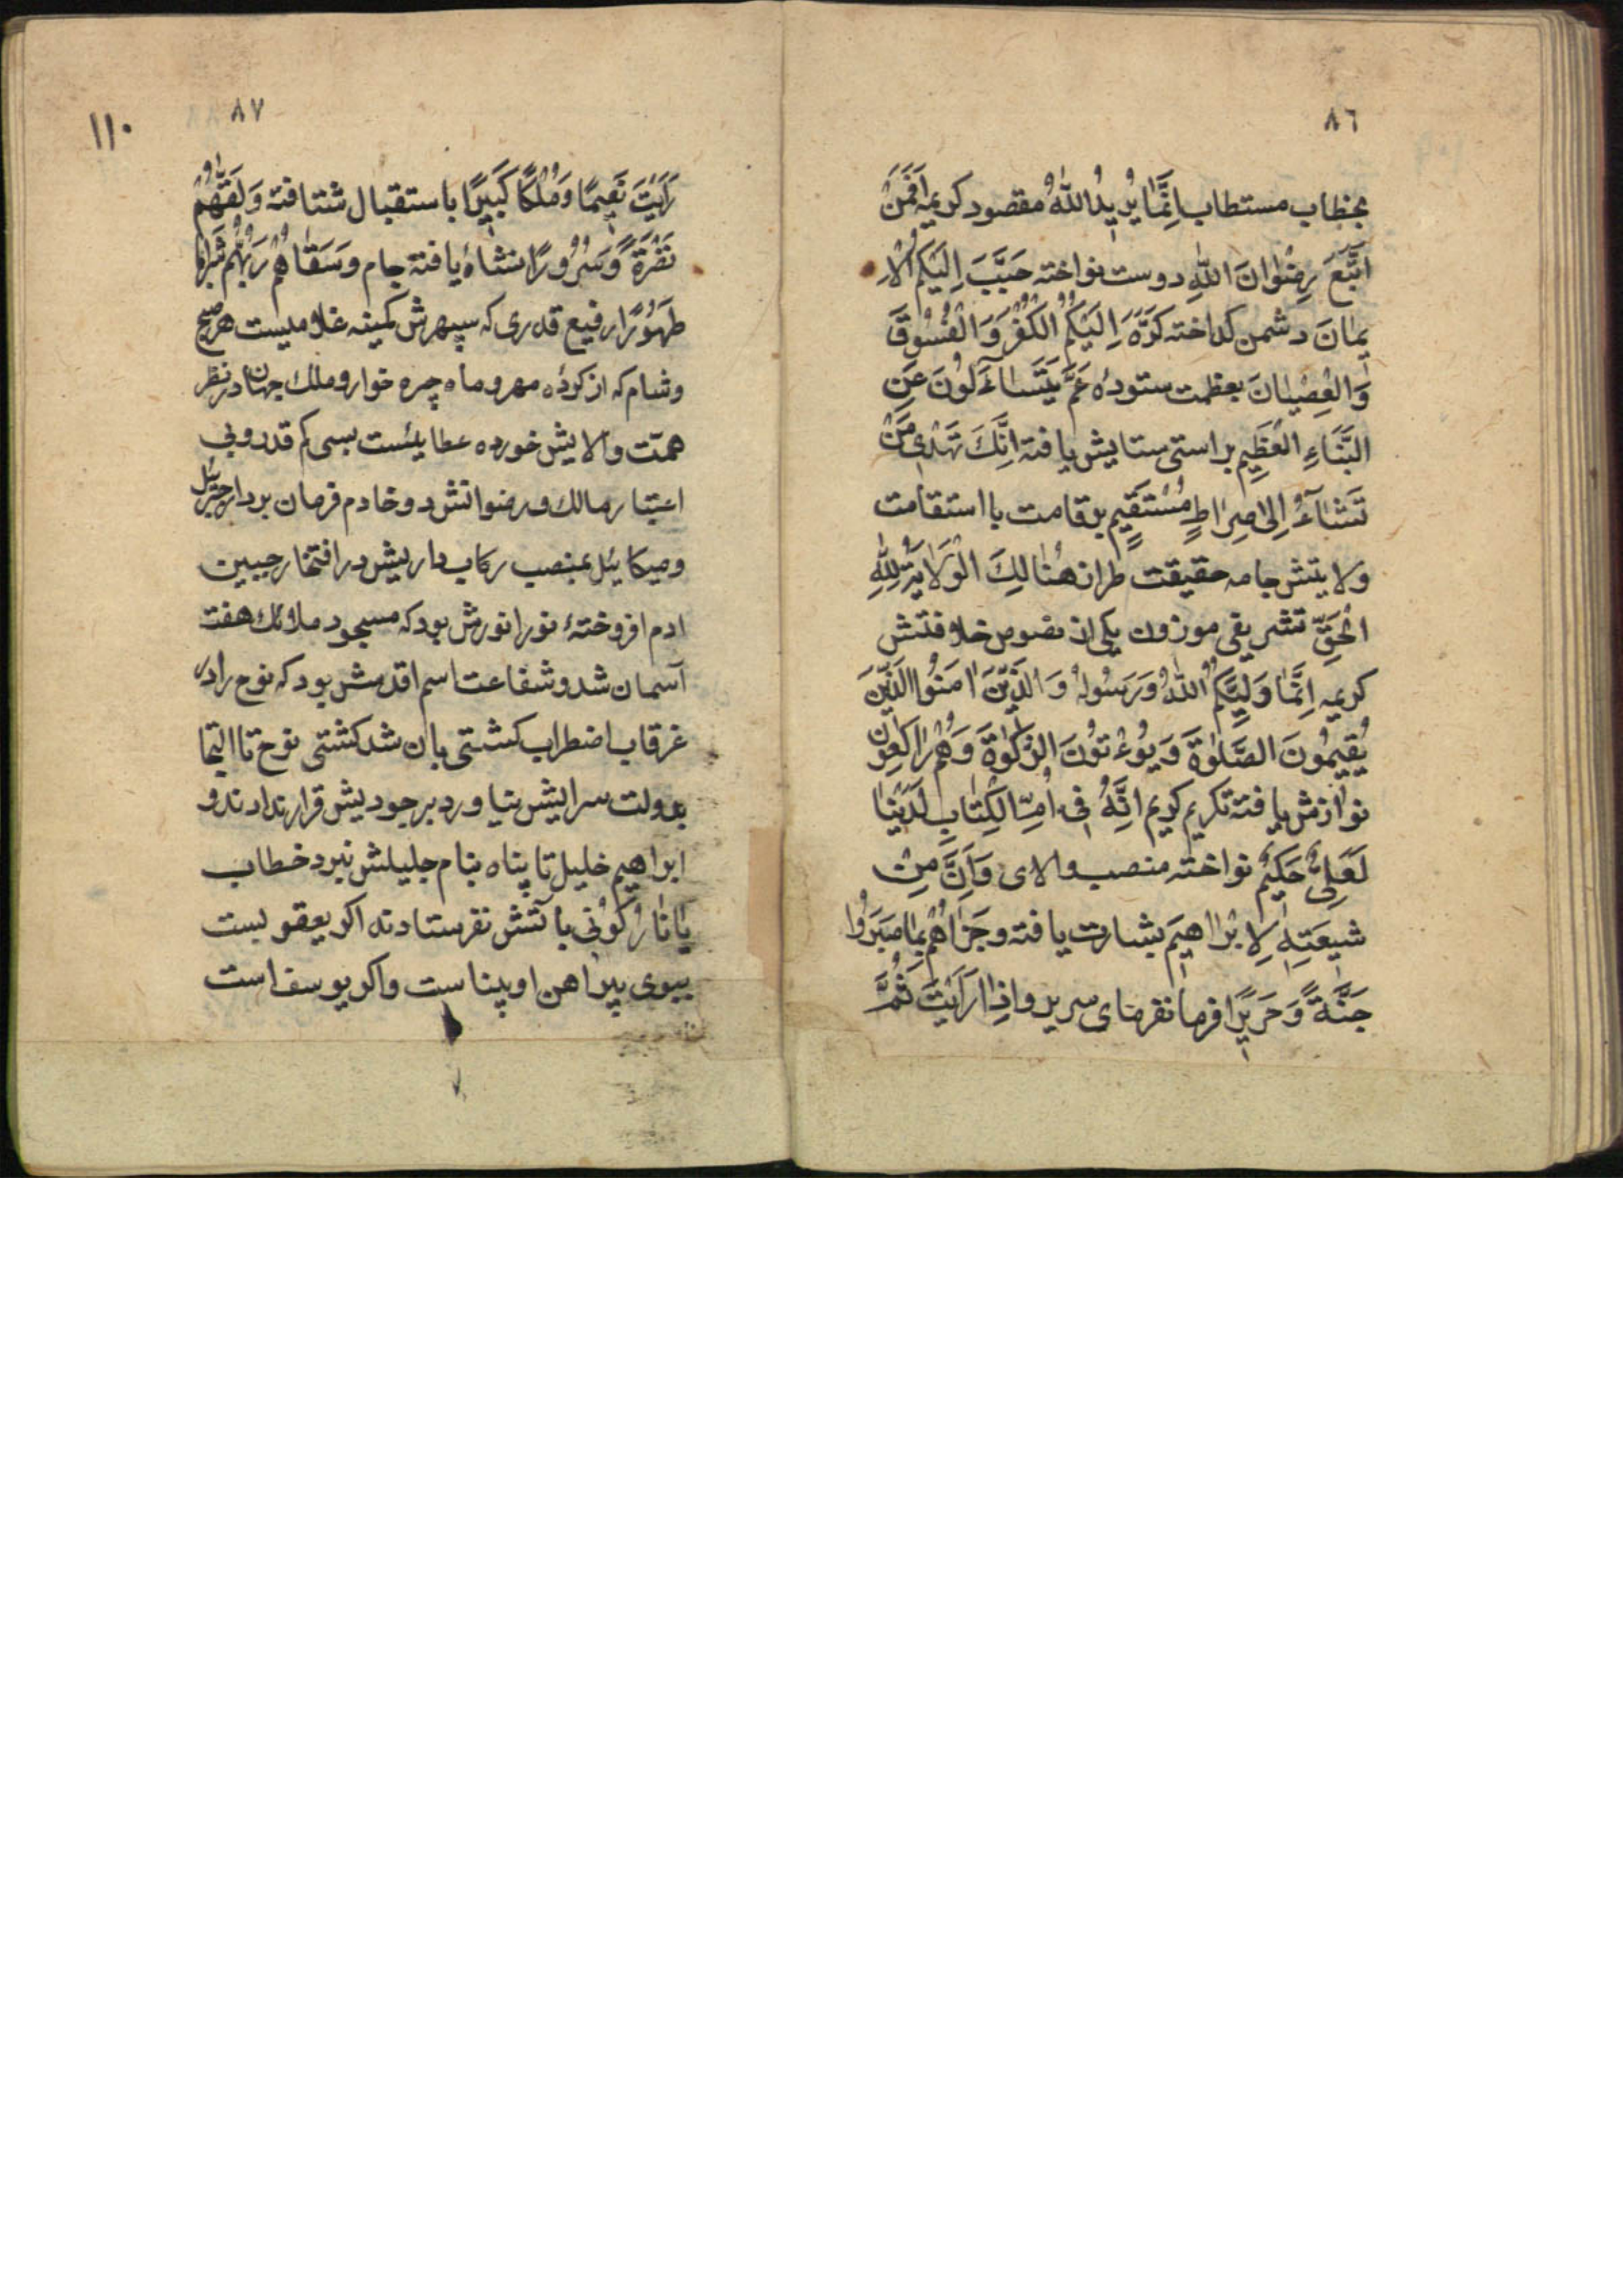 ٨٦
بخطاب مستطاب اِنَّمَا يُرِيدُ اللّٰهُ مقصود كريمه اَفَمَنْ
اتَّبَعَ رِضْوَانَ اللّٰهِ دوست نواخته حَبَّبَ اِلَيْكُمُ الْاِ
يمَانَ دشمن كداخته كَرَّهَ اِلَيْكُمُ الْكُفْرَ وَ الْفُسُوقَ
وَالْعِصْيَانَ بعظمت ستوده عَمَّ يَتَسَاءَلُونَ عَنِ
النَّبَاءِ الْعَظِيمِ براستى ستايش يافته اِنَّكَ تَهْدِى مَنْ
تَشَاءُ اِلىٰ صِرَاطٍ مُسْتَقِيمٍ بر قامت با استقامت
ولايتش جامه حقيقت طراز هُنَالِكَ الْوَلَايَةُ لِلّٰهِ
الْحَقِّ تشريفى موزون يكى از نصوص خلافتش
كريمه اِنَّمَا وَلِيُّكُمُ اللّٰهُ وَرَسُولُهُ وَ الَّذِينَ اٰمَنُوا الَّذِينَ
يُقِيمُونَ الصَّلٰوةَ وَ يُؤْتُونَ الزَّكٰوةَ وَ هُمْ رَاكِعُونَ
نوازش يافته تكريم كريم اِنَّهُ فِى اُمِّ الْكِتَابِ لَدَيْنَا
لَعَلِىٌّ حَكِيمٌ نواخته منصب والاى وَاِنَّ مِنْ
شِيعَتِهِ لَاِبْرَاهِيمَ بشارت يافته وجَزَاهُمْ بِمَا صَبَرُوا
جَنَّةً وَ حَرِيرًا فرمانفرماى سرير واِذَا رَاَيْتَ ثُمَّ
٨٧
١١٠
رَاَيْتَ نَعِيمًا وَ مُلْكًا كَبِيرًا باستقبال شتافته وَ لَقّٰهُمْ
نَضْرَةً وَ سُرُورًا نشاهٔ يافته جام وَ سَقَاهُمْ رَبُّهُمْ شَرَابًا
طَهُورًا رفيع قدرى كه سپهرش كمينه غلاميست هر صبح
وشام كه از كرده مهر و ماه چره خوار و ملك جهان در نظر
همت والايش خورده عطايئست بسى كم قدر و بى
اعتبار مالك و رضوانش دو خادم فرمان بردار جبرئيل
وميكائيل بمنصب ركاب داريش در افتخار جبين
ادم افروختهٔ نور انورش بود كه مسجود ملائك هفت
آسمان شد و شفاعت اسم اقدسش بود كه نوح را در
غرقاب اضطراب كشتى بان شد كشتى نوح تا التجا
بدولت سرايش نياورد بر جوديش قرار ندادند و
ابراهيم خليل تا پناه بنام جليلش نبرد خطاب
يَا نَارُ كُونِى باتشش نفرستادند اكر يعقوبست
ببوى پيراهن او بيناست واكر يوسف است